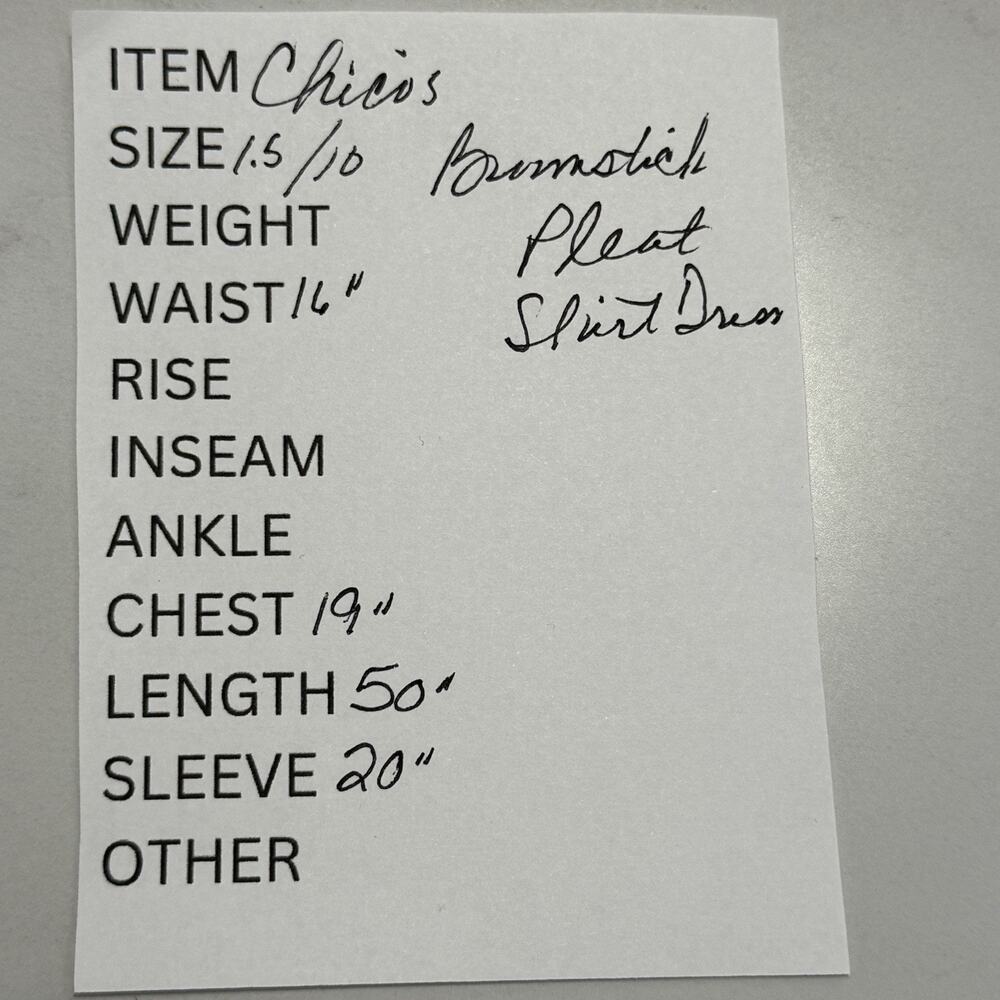 ITEM Chicos
SIZE 1.5/10 Broomstick
WEIGHT Pleat
WAIST 16" Shirt Dress
RISE
INSEAM
ANKLE
CHEST 19"
LENGTH 50"
SLEEVE 20"
OTHER